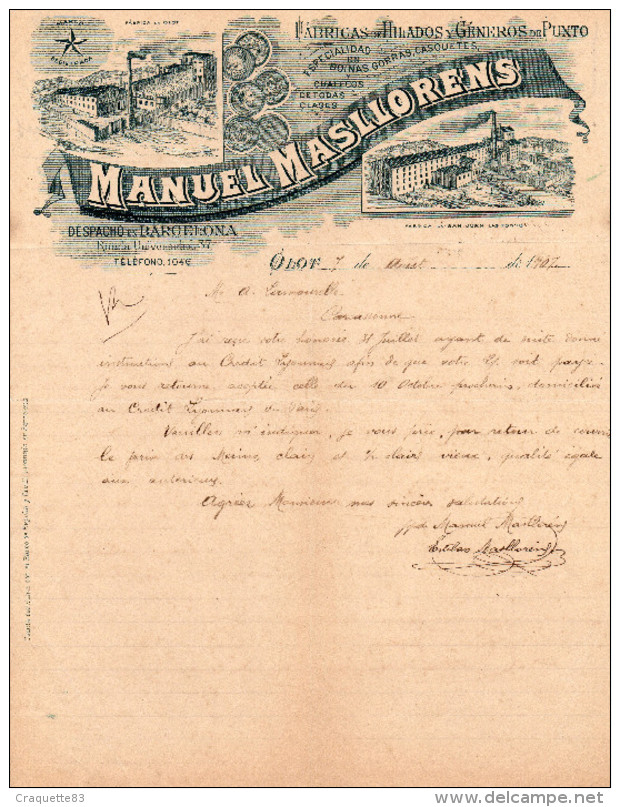 FÁBRICAS DE HILADOS Y GÉNEROS DE PUNTO
MARCA
REGISTRADA
FÁBRICA DE OLOT
ESPECIALIDAD
EN
BOINAS, GORRAS, CASQUETES,
CHALECOS
DE TODAS
CLASES
MANUEL MASLLORENS
FÁBRICA DE SAN JUAN LAS FONTS
DESPACHO EN BARCELONA
Ronda Universidad, 37
TELÉFONO, 1046
OLOT 7 de Aout de 1907
Mr A.
Carcassonne
J'ai reçu votre honorée 31 Juillet ayant de suite donné
instruction au Credit Lyonnais afin de que votre soit payé.
Je vous retourne acceptée celle du 10 Octobre prochain, domiciliée
au Credit Lyonnais de Paris.
Veuillez m'indiquer, je vous prie, par retour de courrier
le prix des clair et ½ clair vieux, qualité égale
aux anterieurs.
Agréez Monsieur nos sincères salutations
pp de Manuel Masllorens
Esteban Masllorens
Craquette83
delcampe.net